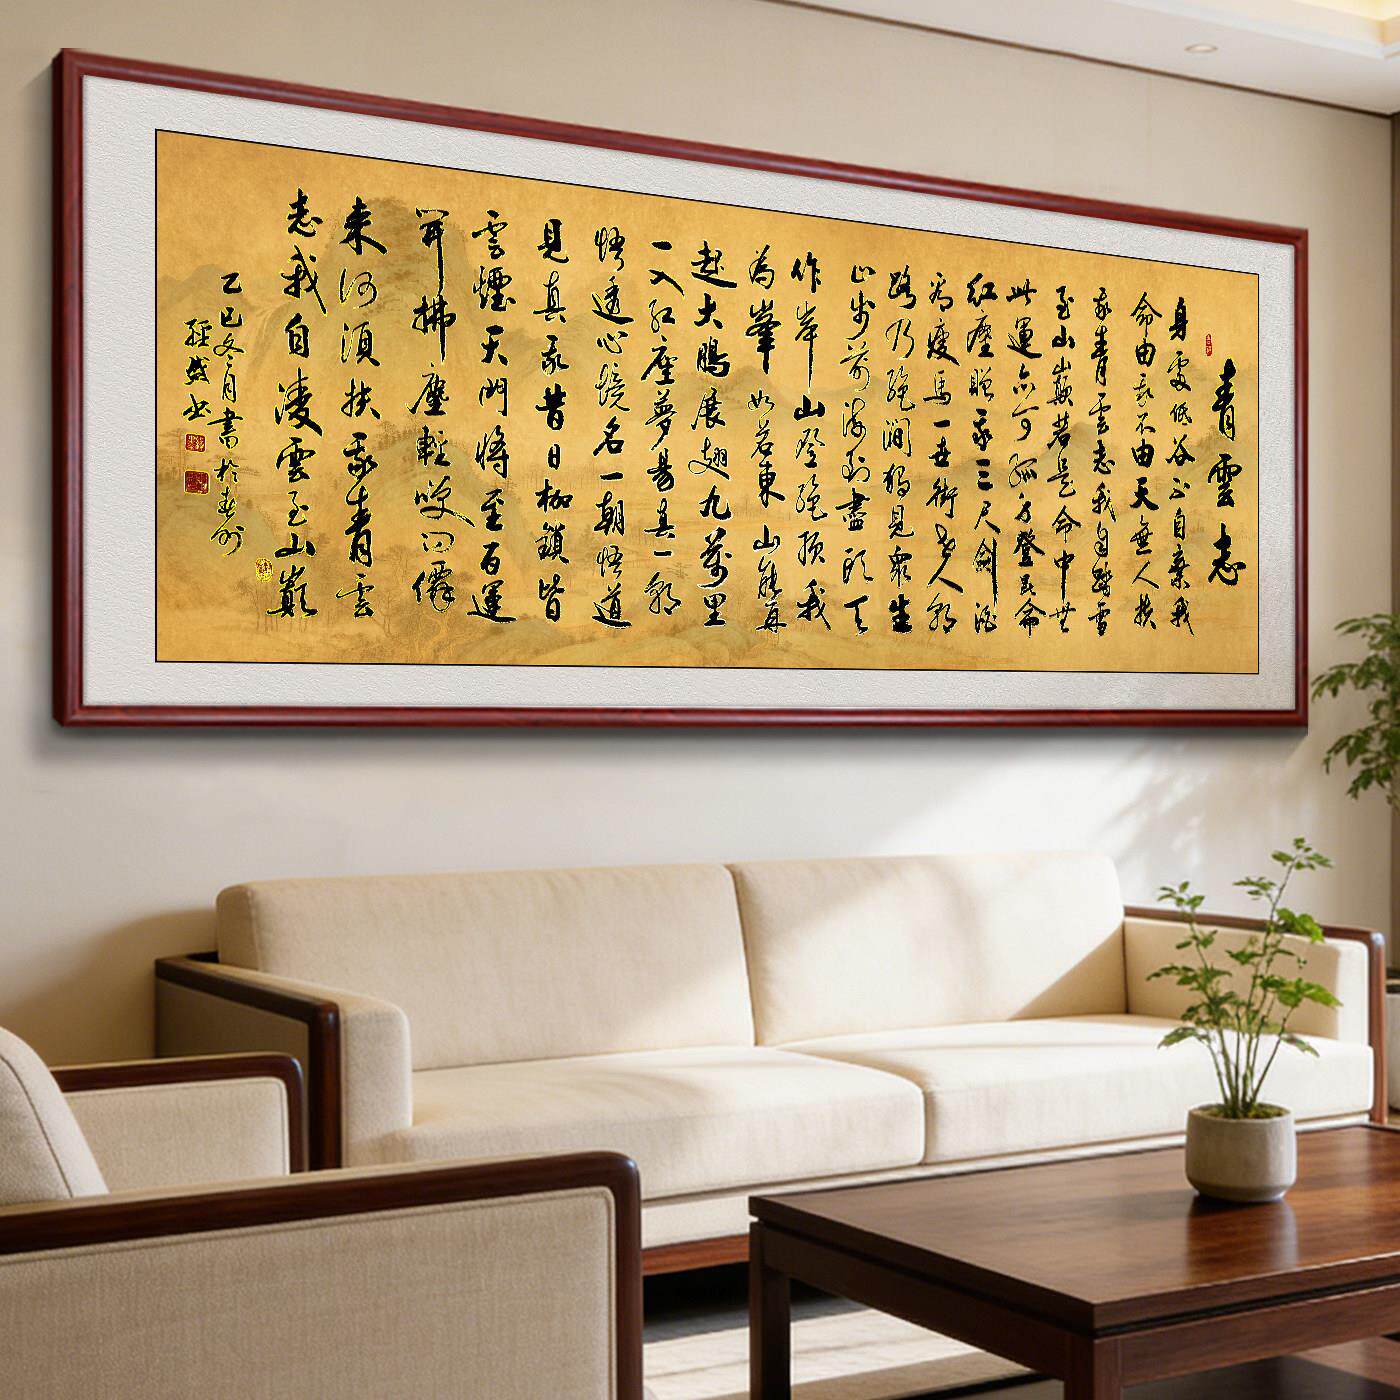 青雲志
身處低谷不自棄我
命由我不由天無人扶
我青雲志我自踏雪
至山巔若是命中無
此運亦可孤身登昆侖
紅塵贈我三尺劍酒
為瘦馬一世街人朝
路乃絕澗獨見眾生
止步前海到盡頭天
作岸山登絕頂我
為峯如若東山能再
起大鵬展翅九萬里
一入紅塵夢易真一朝
悟透心境名一朝悟道
見真我昔日枷鎖皆
雲煙天門將至百運
開拂塵輕笑問僊
来何須扶我青雲
志我自凌雲至山巔
乙巳冬月書於